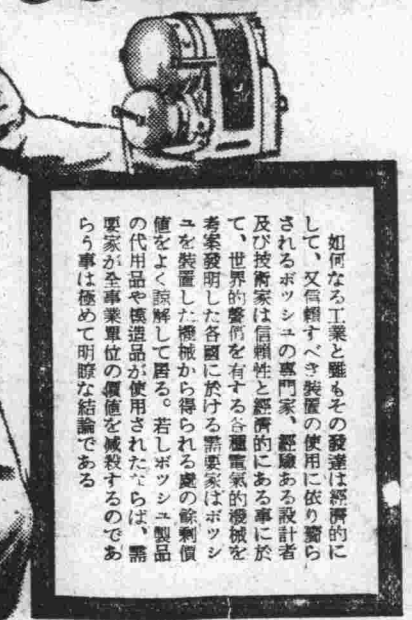 如何なる工業と雖もその發達は經濟的に
して、又信頼すべき裝置の使用に依り齎ら
されるボッシュの專門家、經驗ある設計者
及び技術家は信頼性と經濟的にある事に於
て、世界的聲價を有する各種電氣的機械を
考案發明した各國に於ける需要家はボッシ
ュを裝置した機械から得られる處の餘剩價
値をよく諒解して居る。若しボッシュ製品
の代用品や模造品が使用されたならば、需
要家が全事業單位の價値を減殺するのであ
らう事は極めて明瞭な結論である